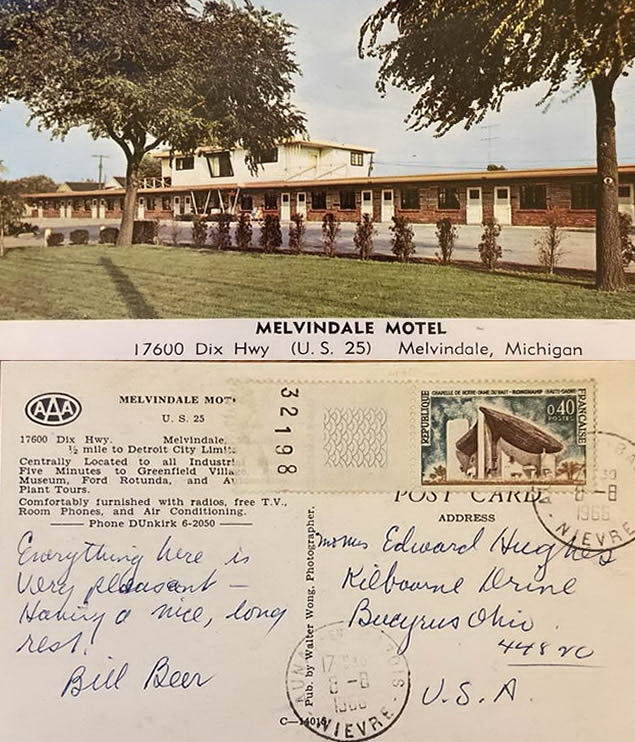 MELVINDALE MOTEL
17600 Dix Hwy (U. S. 25) Melvindale, Michigan
AAA
MELVINDALE MOT
U. S. 25
17600 Dix Hwy. Melvindale,
½ mile to Detroit City Limit
Centrally Located to all Industri
Five Minutes to Greenfield Villa
Museum, Ford Rotunda, and Au
Plant Tours.
Comfortably furnished with radios, free T.V.,
Room Phones, and Air Conditioning.
Phone DUnkirk 6-2050
32198
CHAPELLE DE NOTRE-DAME DU HAUT - RONCHAMP (HAUTE-SAONE)
RÉPUBLIQUE
FRANÇAISE
0,40
POSTES
8-8
1966
NIEVRE
POST CARD
ADDRESS
Everything here is
very pleasant —
Having a nice, long
rest.
Bill Beer
Pub. by Walter Wong, Photographer.
Edward Hughes
Kilbourne Drive
Bucyrus Ohio.
44820
U.S.A.
17
8-8
1966
NIEVRE
C—14018